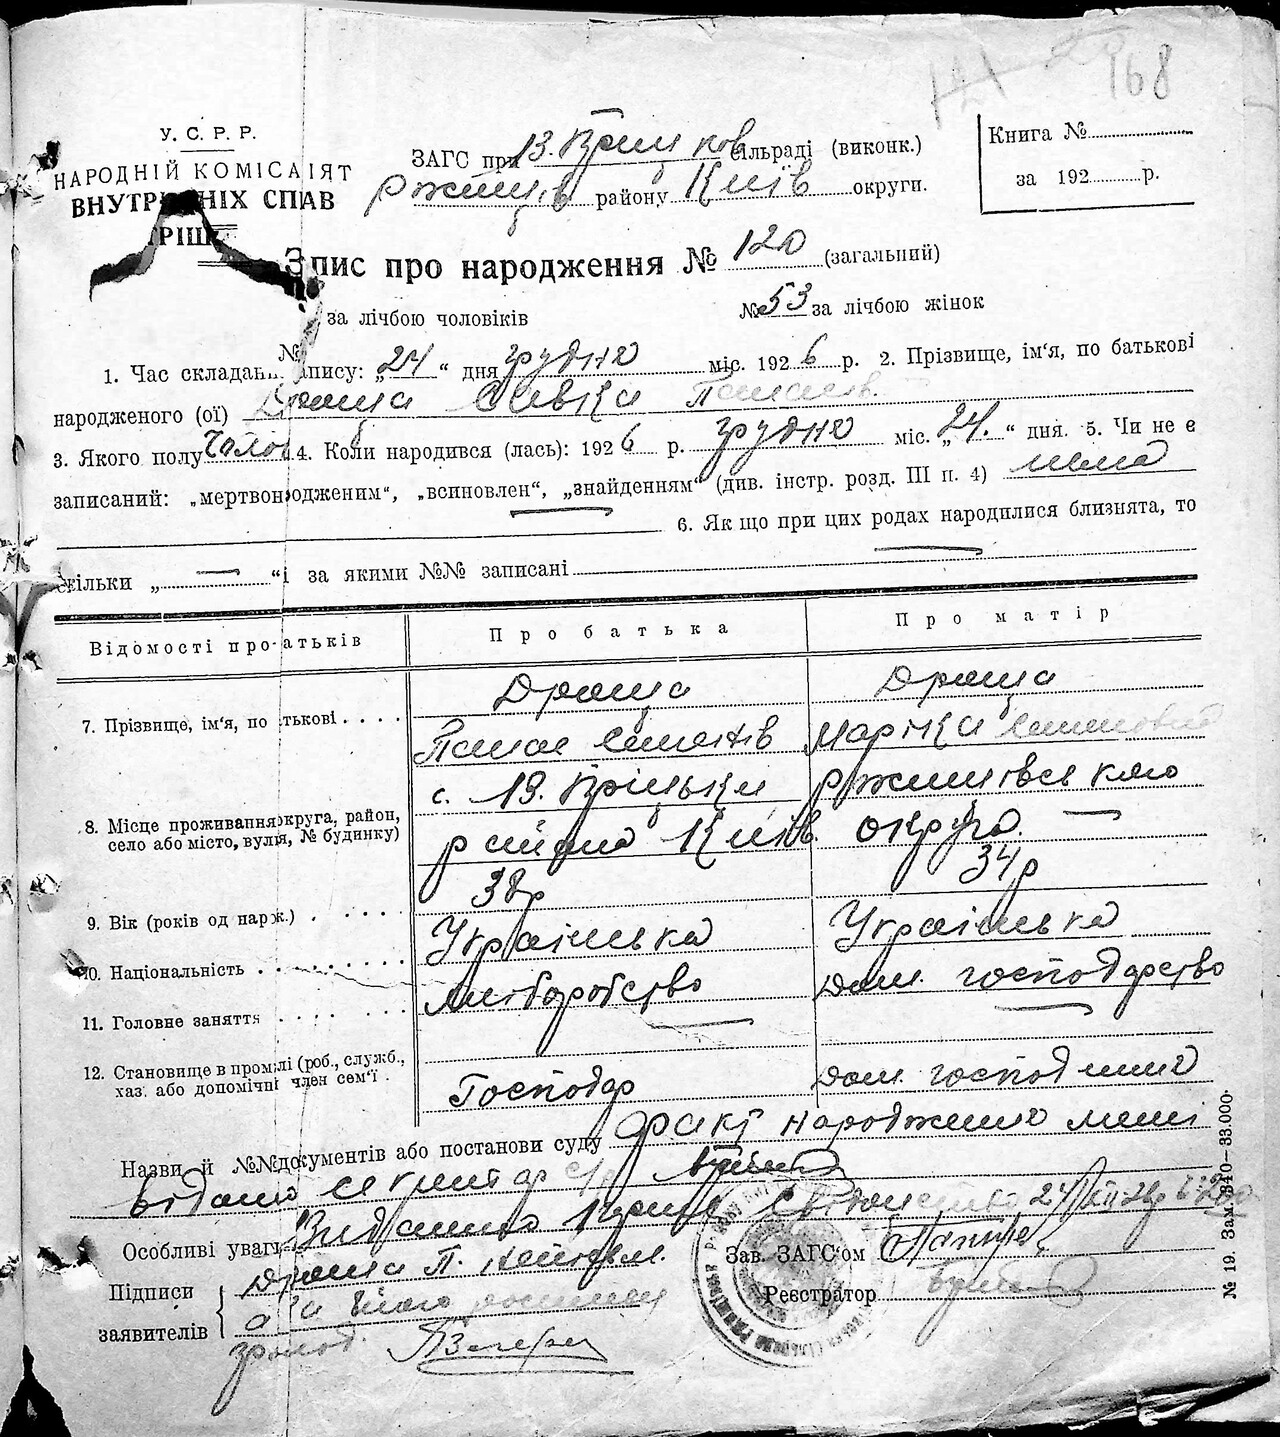 168
У. С. Р. Р.
НАРОДНІЙ КОМІСАІЯТ
ВНУТРІШНІХ СПАВ
ЗАГС при В. Кріцьков сільраді (виконк.)
Ржищів району Київ округи.
Книга №
за 192 р.
Зпис про народження № 120 (загальний)
№ за лічбою чоловіків
№ 53 за лічбою жінок
1. Час складан запису: „24“ дня грудня міс. 1926 р. 2. Прізвище, ім‘я, по батькові
народженого (ої) Драца Савка Панасів.
3. Якого полу Чолов. 4. Коли народився (лась): 1926 р. грудня міс. „24.“ дня. 5. Чи не є
записаний: „мертвонродженим“, „всиновлен“, „знайденням“ (див. інстр. розд. III п. 4) нема
6. Як що при цих родах народилися близнята, то
скільки „—“ і за якими №№ записані
Відомості про атьків
Про батька
Про матір
7. Прізвище, ім‘я, по тькові
Драца
Панас
Драца
Марійка
8. Місце проживання округа, район, село або місто, вулія, № будинку)
с. В. Кріцьки Ржищівського
району Київ. округа
9. Вік (років од нарж.)
38р
34р
10. Національність
Українська
Українська
11. Головне заняття
хліборобство
Дом. господарство
12. Становище в промлі (роб., служб., хаз. або допомічні член сем‘ї
Господар
Дом. господиня
Назви й №№ документів або постанови суду факт народження мені
відомо секретар с/р
Особливі уваги Видано
24/XII 26р
Підписи заявителів
Драца П.
а за його
Зав. ЗАГС‘ом
Реєстратор
№ 19. Зам. 840—33.000.